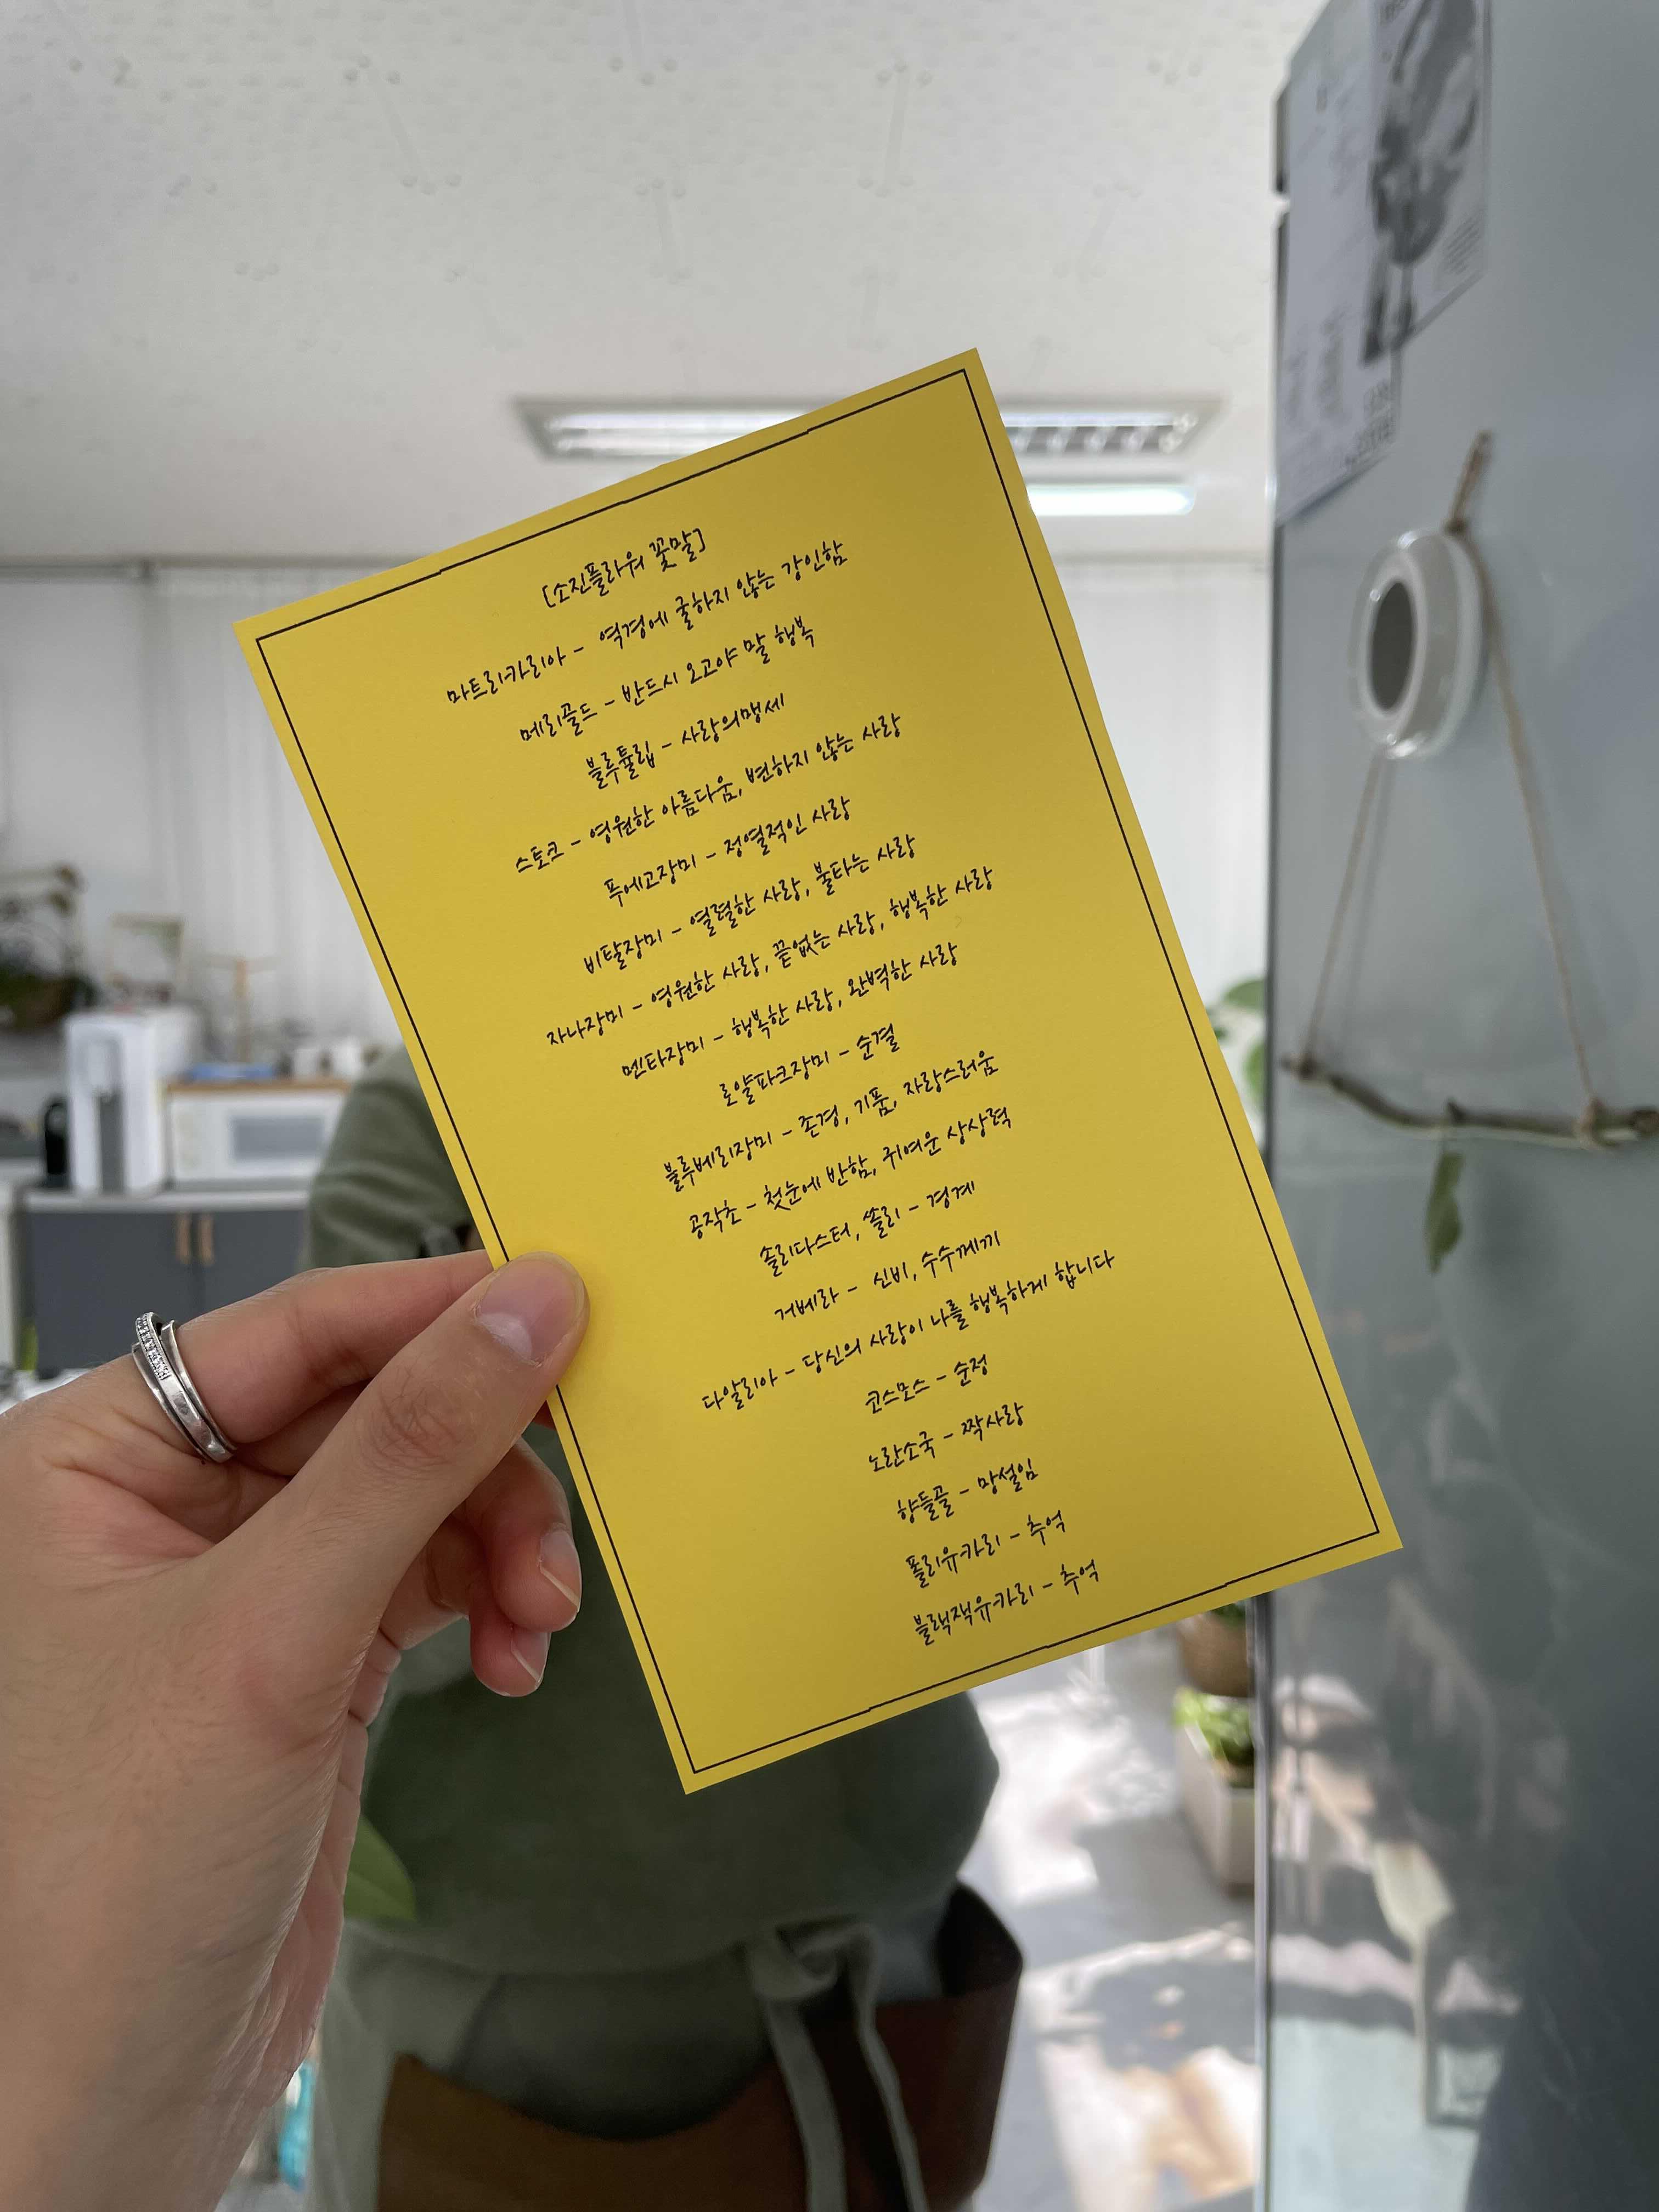 [소진플라워 꽃말]
마트리카리아 - 역경에 굴하지 않는 강인함
메리골드 - 반드시 오고야 말 행복
블루튤립 - 사랑의맹세
스토크 - 영원한 아름다움, 변하지 않는 사랑
푸에고장미 - 정열적인 사랑
비탈장미 - 열렬한 사랑, 불타는 사랑
자나장미 - 영원한 사랑, 끝없는 사랑, 행복한 사랑
멘타장미 - 행복한 사랑, 완벽한 사랑
로얄파크장미 - 순결
블루베리장미 - 존경, 기품, 자랑스러움
공작초 - 첫눈에 반함, 귀여운 상상력
솔리다스터, 쏠리 - 경계
거베라 - 신비, 수수께끼
다알리아 - 당신의 사랑이 나를 행복하게 합니다
코스모스 - 순정
노란소국 - 짝사랑
향등골 - 망설임
폴리유카리 - 추억
블랙잭유카리 - 추억